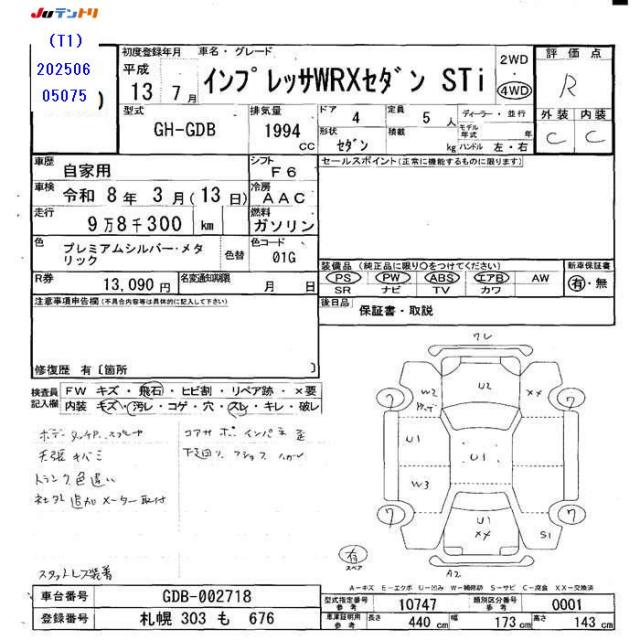 JUテントリ
(T1)
202506
05075
)
初度登録年月 車名・グレード
平成
13 7月
インプレッサWRXセダン STi
2WD
4WD
評価点
R
外装 内装
C C
型式
GH-GDB
排気量
1994
CC
ドア 4
定員 5 人
ディーラー・並行
モデル年式 年
形状 セダン
積載 kg
ハンドル 左・右
車歴 自家用
シフト F6
セールスポイント(正常に機能するものに限ります)
車検 令和 8年 3月(13日)
冷房 AAC
走行 9万8千300 km
燃料 ガソリン
色 プレミアムシルバー・メタリック
色替
色コード 01G
装備品 (純正品に限り〇をつけてください)
PS PW ABS エアB AW
SR ナビ TV カワ
新車保証書
有・無
R券 13,090円
名変通知期限 月 日
後日品 保証書・取説
注意事項申告欄(不具合内容等は具体的に記入して下さい)
修復歴 有〔箇所 〕
検査員記入欄
FW キズ・飛石・ヒビ割・リペア跡・×要
内装 キズ・汚レ・コゲ・穴・スレ・キレ・破レ
天張キバミ
トランク色違い
社外追加メーター取付
スタットレス装着
コアサポ インパネ 歪
ワレ
W2
U2
XX
ワ
ワ
U1
U1
W3
U1
XX
S1
ワ
ワ
有
スペア
A2
A-キズ E-エクボ U-凹み W-補修跡 S-サビ C-腐食 XX-交換済
車台番号 GDB-002718
登録番号 札幌 303 も 676
型式指定番号 参考 10747
類別区分番号 参考 0001
車庫証明用 参考 長さ 440 cm 幅 173 cm 高さ 143 cm